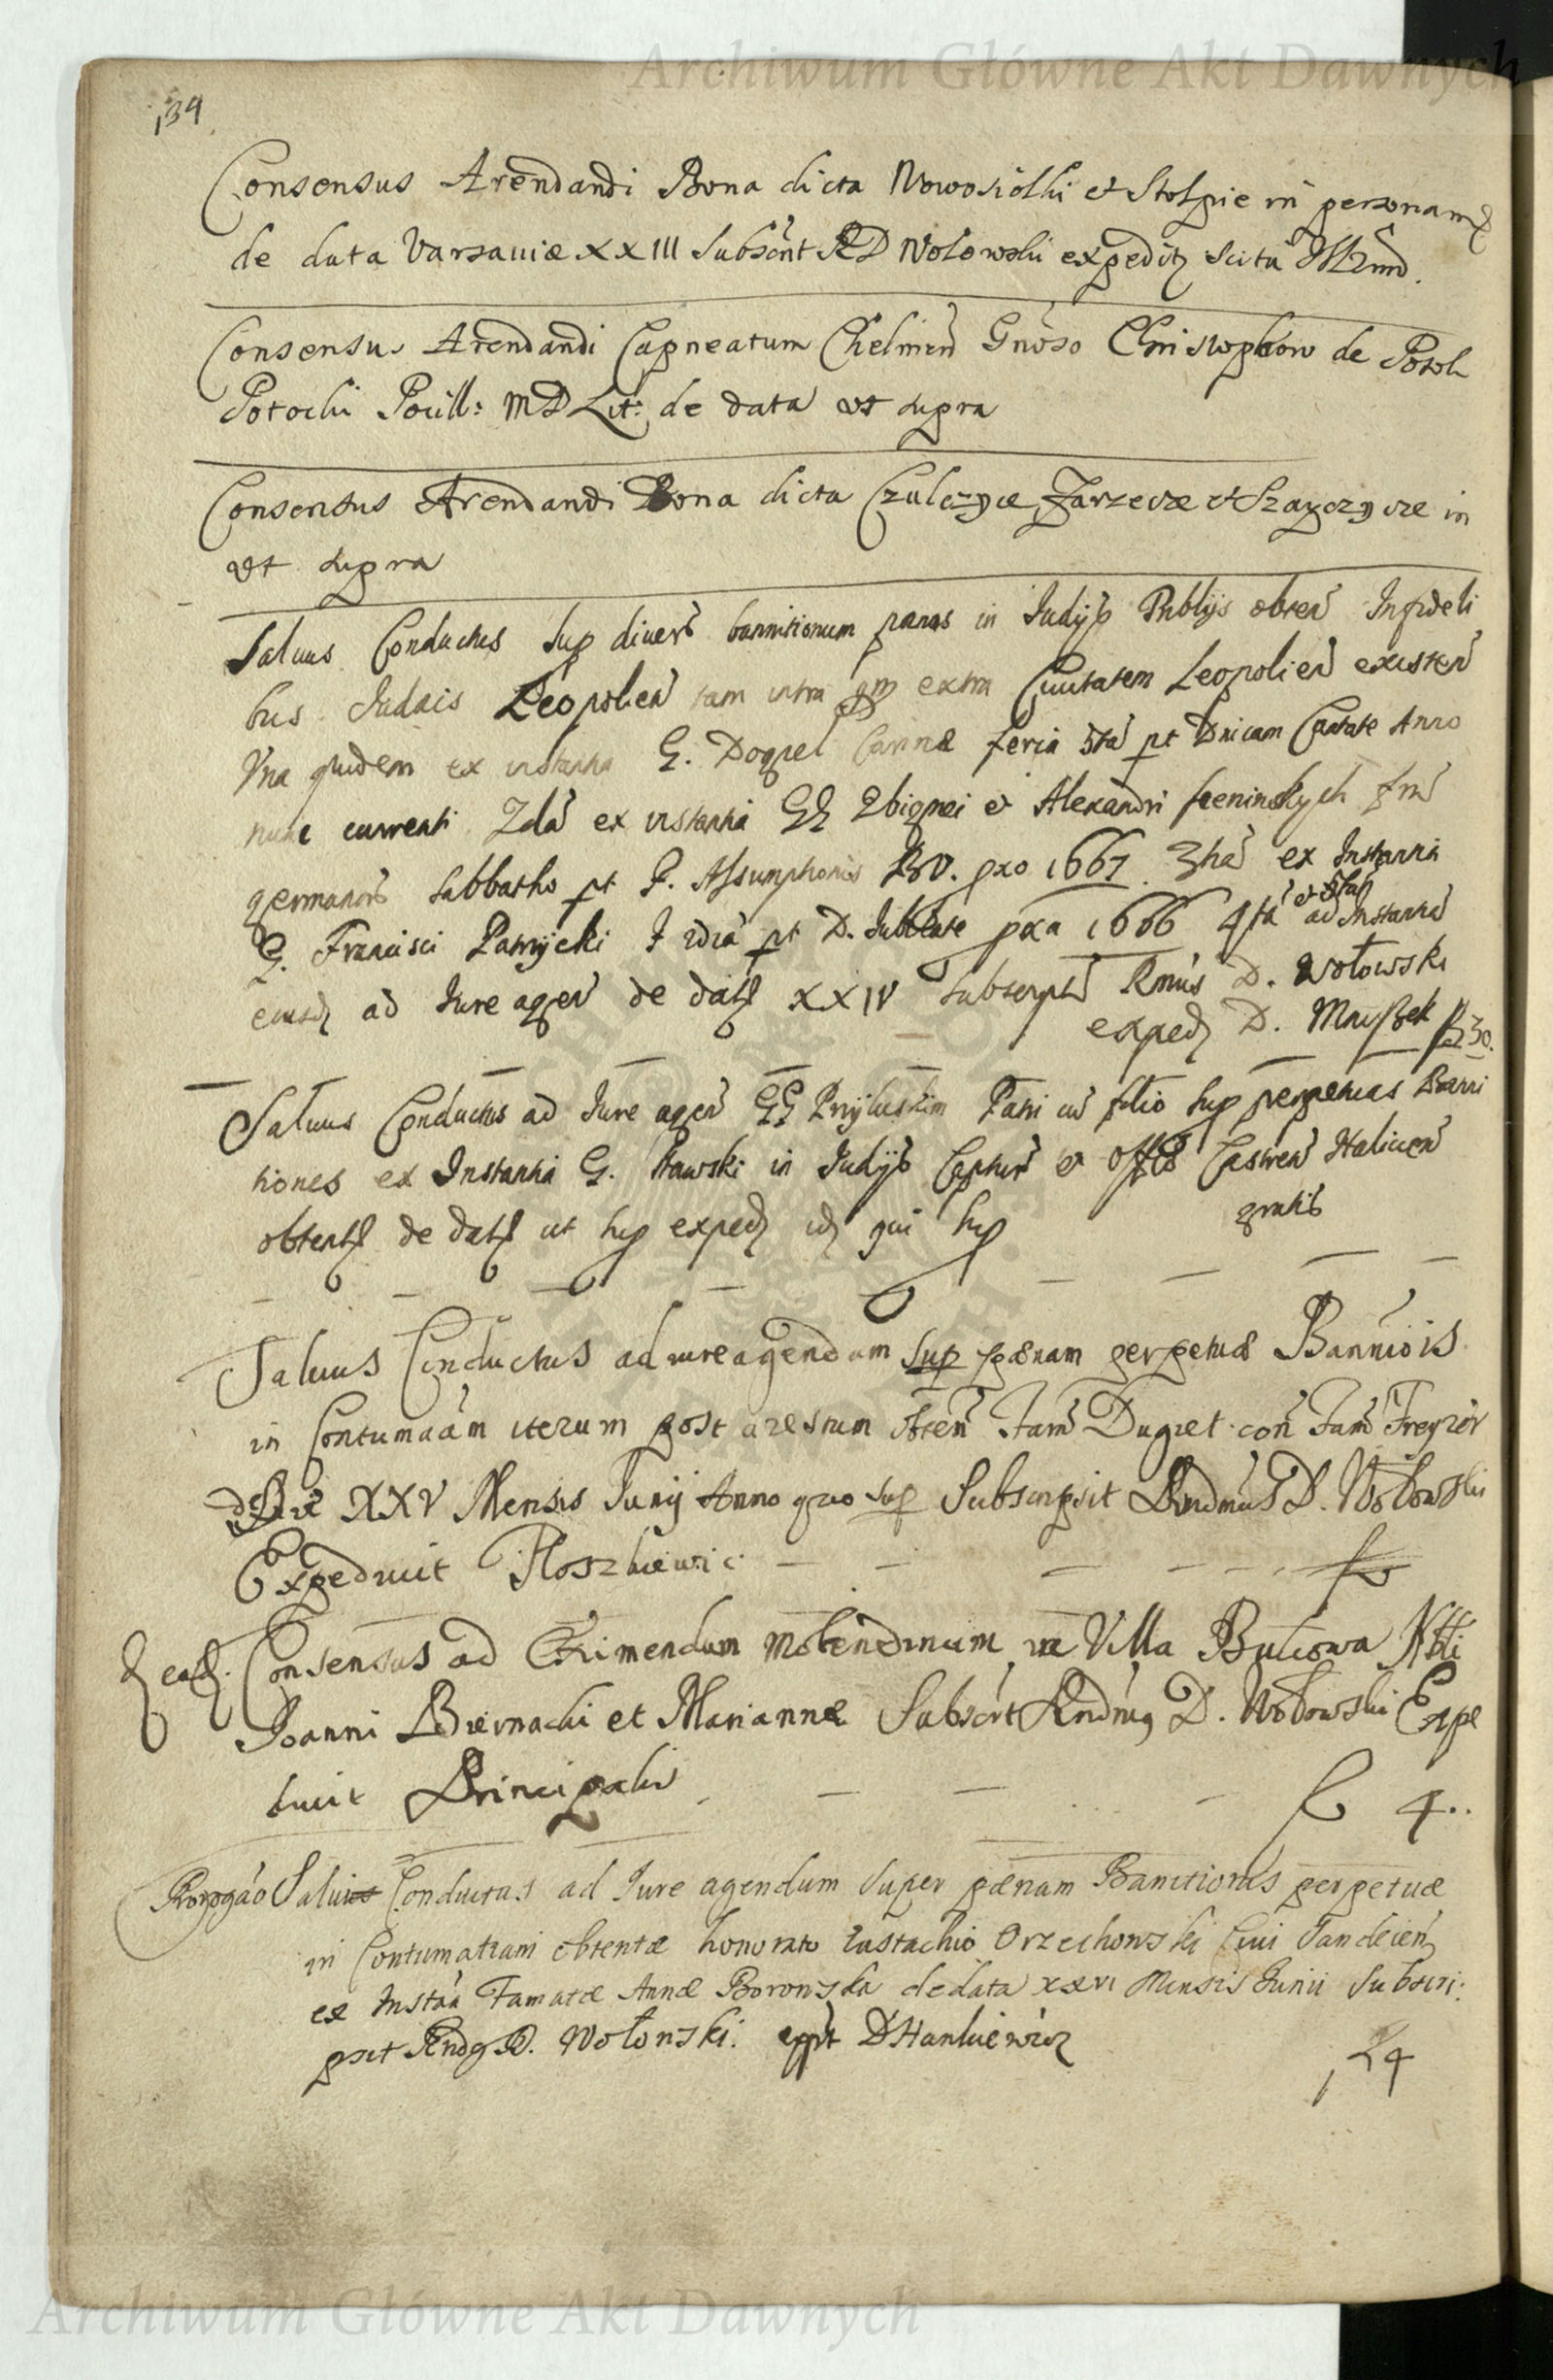 Archiwum Główne Akt Dawnych
134
Consensus Arendandi Bona dicta Nowosiolki et Stolpie in personam
de data Varsaviæ XXIII Subscnt RD Wolowski expedit
Consensus Arendandi Capneatum Chelmen Gnoso Christophoro de Potok
Potocki Pocill: MD Lit: de data vt supra
Consensus Arendandi Bona dicta Czulczyce, Zarzecze et in
vt supra
Saluus Conductus sup divers bannitionum pænas in Judijs Publijs obten Infideli
bus Judæis Leopolien tam intra qm extra Ciuitatem Leopolien existen
Vna quidem ex instantia G. Doqpel feria 5ta pt Dnicam Cantate Anno
nunc currenti 2da ex instantia GG Zbignei et Alexandri
germanors Sabbatho pt F. Assumptionis BV. pxo 1667. 3tia ex Instantia
G. Francisci F 2da pt D. Jubilate pxa 1666 4ta et 5ta ad Instantia
eiusd ad Jure agen de dat XXIV subscrpts Rmus D. Wołowski
exped D. Mnyszek 30.
Saluus Conductus ad Jure agen GG Przyluskim Patri cu filio sup perpetuas Banni
tiones ex Instantia G. Rawski in Judijs Captur et Offis Castren Halicien
obtent de dat ut sup exped id qui sup gratis
Saluus Conductus ad iure agendum sup pænam perpetuæ Bannicois
in Contumaam iterum post arestum obten Fam Dugiet con Fam Freyzer
die XXV Mensis Junij Anno quo sup Subscripsit Rndmus D. Wołowski
Expediuit Ploszkiewic:
ead. Consensus ad Eximendum Molendinum in Villa Bulcowa Nbli
Joanni Biernacki et Mariannæ Subscrt Rndmus D. Wołowski Expe
diuit Principalis 4..
Prorogao Salui Conductus ad Jure agendum super pænam Banitionis perpetuæ
in Contumatiam obtentæ honorato Eustachio Orzechowski Ciui
ex Instaa Famatæ Annæ Borowska de data XXVI Mensis Junii Subscri:
psit Rnd D. Wołowski. expt D Hankiewicz
24
Archiwum Główne Akt Dawnych